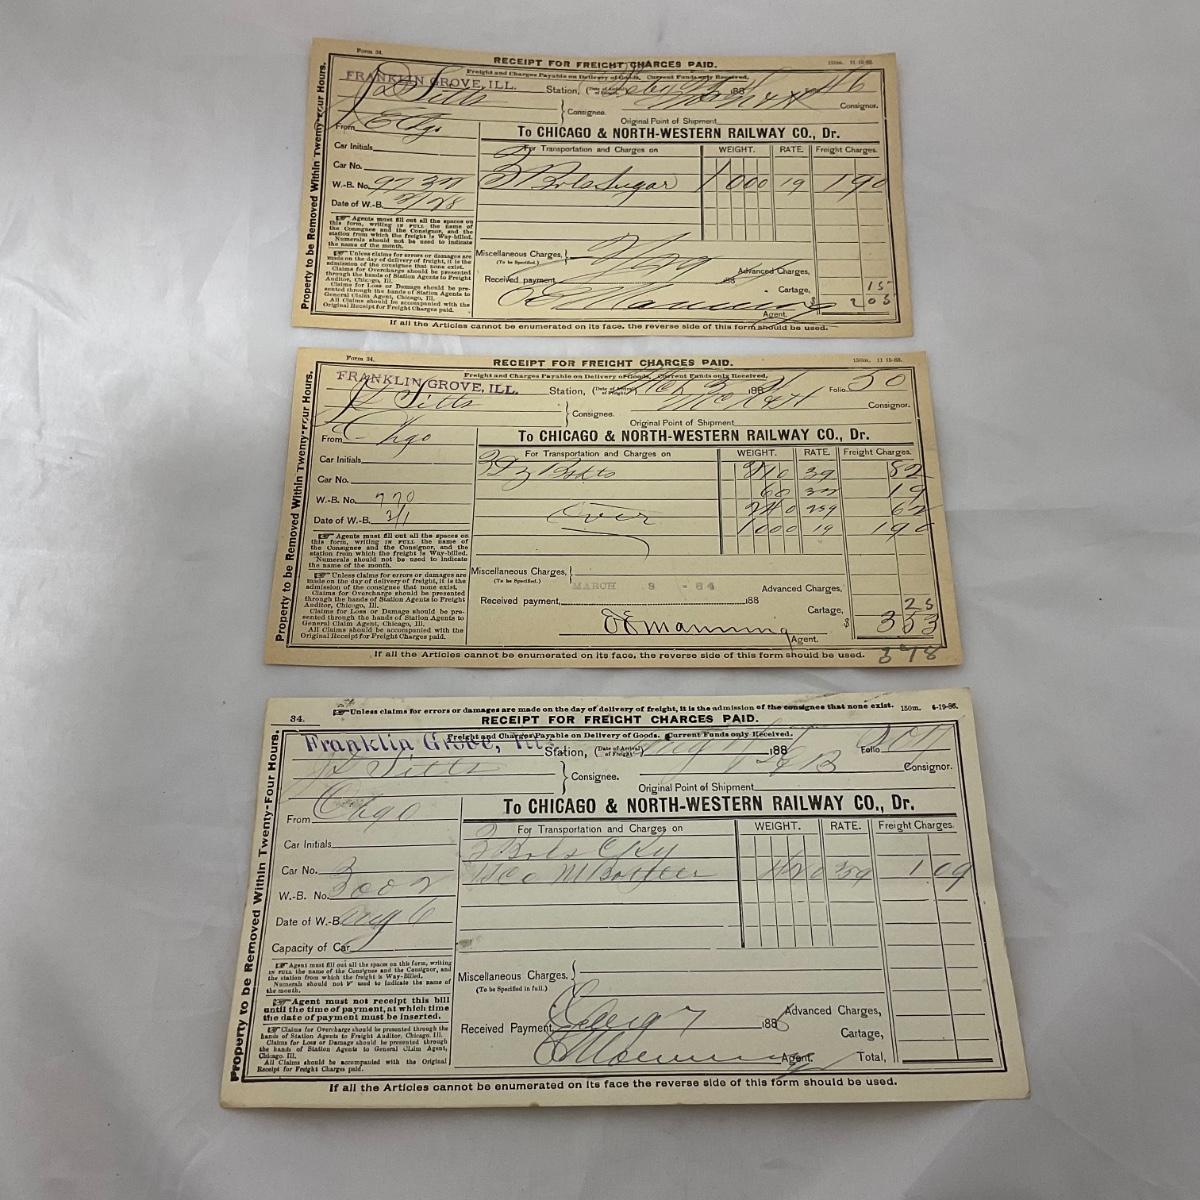 Form 34.
RECEIPT FOR FREIGHT CHARGES PAID.
150m. 11 15-83.
Freight and Charges Payable on Delivery of Goods. Current Funds only Received.
FRANKLIN GROVE, ILL. Station, (Date of Arrival of Freight) 188 Folio 46
J D Sitts Consignee. Consignor.
Original Point of Shipment
To CHICAGO & NORTH-WESTERN RAILWAY CO., Dr.
From Chgo
For Transportation and Charges on WEIGHT. RATE. Freight Charges.
Car Initials
Car No.
W.-B. No. 97 37
3 Brls Sugar 1000 19 190
Date of W.-B. 2/28
Agents must fill out all the spaces on this form, writing IN FULL the name of the Consignee and the Consignor, and the station from which the freight is Way-billed.
Numerals should not be used to indicate the name of the month.
Unless claims for errors or damages are made on the day of delivery of freight, it is the admission of the consignee that none exist.
Claims for Overcharge should be presented through the hands of Station Agents to Freight Auditor, Chicago, Ill.
Claims for Loss or Damage should be presented through the hands of Station Agents to General Claim Agent, Chicago, Ill.
All Claims should be accompanied with the Original Receipt for Freight Charges paid.
Miscellaneous Charges,
(To be Specified.)
Received payment, 2/29 188 Advanced Charges,
Cartage, 15
E E Manning Agent. $ 205
If all the Articles cannot be enumerated on its face, the reverse side of this form should be used.
Property to be Removed Within Twenty-Four Hours.
Form 34.
RECEIPT FOR FREIGHT CHARGES PAID.
150m. 11 15-83.
Freight and Charges Payable on Delivery of Goods. Current Funds only Received,
FRANKLIN GROVE, ILL. Station, (Date of Arrival of Freight) Mch 3 188 Folio 50
J D Sitts Consignee. Consignor.
Original Point of Shipment
To CHICAGO & NORTH-WESTERN RAILWAY CO., Dr.
From Chgo
For Transportation and Charges on WEIGHT. RATE. Freight Charges.
Car Initials
39 82
Car No.
68 19
W.-B. No. 770
Over 240 259 62
Date of W.-B. 3/1
1000 19 190
Agents must fill out all the spaces on this form, writing IN FULL the name of the Consignee and the Consignor, and the station from which the freight is Way-billed.
Numerals should not be used to indicate the name of the month.
Unless claims for errors or damages are made on the day of delivery of freight, it is the admission of the consignee that none exist.
Claims for Overcharge should be presented through the hands of Station Agents to Freight Auditor, Chicago, Ill.
Claims for Loss or Damage should be presented through the hands of Station Agents to General Claim Agent, Chicago, Ill.
All Claims should be accompanied with the Original Receipt for Freight Charges paid.
Miscellaneous Charges,
(To be Specified.)
MARCH 3 - 84
Advanced Charges,
Received payment, 188
Cartage, 25
E E Manning Agent. $ 353
If all the Articles cannot be enumerated on its face, the reverse side of this form should be used. 378
Property to be Removed Within Twenty-Four Hours.
Unless claims for errors or damages are made on the day of delivery of freight, it is the admission of the consignee that none exist. 150m. 4-19-86.
34.
RECEIPT FOR FREIGHT CHARGES PAID.
Freight and Charges Payable on Delivery of Goods. Current Funds only Received.
Franklin Grove, Ills. Station, (Date of Arrival of Freight) Aug 7 188 Folio
J D Sitts Consignee. Consignor.
Original Point of Shipment
To CHICAGO & NORTH-WESTERN RAILWAY CO., Dr.
From Chgo
For Transportation and Charges on WEIGHT. RATE. Freight Charges.
Car Initials
3 Brls
Car No.
420 259 1 09
W.-B. No. 3002
Date of W.-B. Aug 6
Capacity of Car
Agent must fill out all the spaces on this form, writing IN FULL the name of the Consignee and the Consignor, and the station from which the freight is Way-Billed.
Numerals should not be used to indicate the name of the month.
Agent must not receipt this bill until the time of payment, at which time the date of payment must be inserted.
Claims for Overcharge should be presented through the hands of Station Agents to Freight Auditor, Chicago. Ill.
Claims for Loss or Damage should be presented through the hands of Station Agents to General Claim Agent, Chicago. Ill.
All Claims should be accompanied with the Original Receipt for Freight Charges paid.
Miscellaneous Charges.
(To be Specified in full.)
Advanced Charges,
Received Payment, Aug 7 1886
Cartage,
E E Manning Agent. Total,
If all the Articles cannot be enumerated on its face the reverse side of this form should be used.
Property to be Removed Within Twenty-Four Hours.